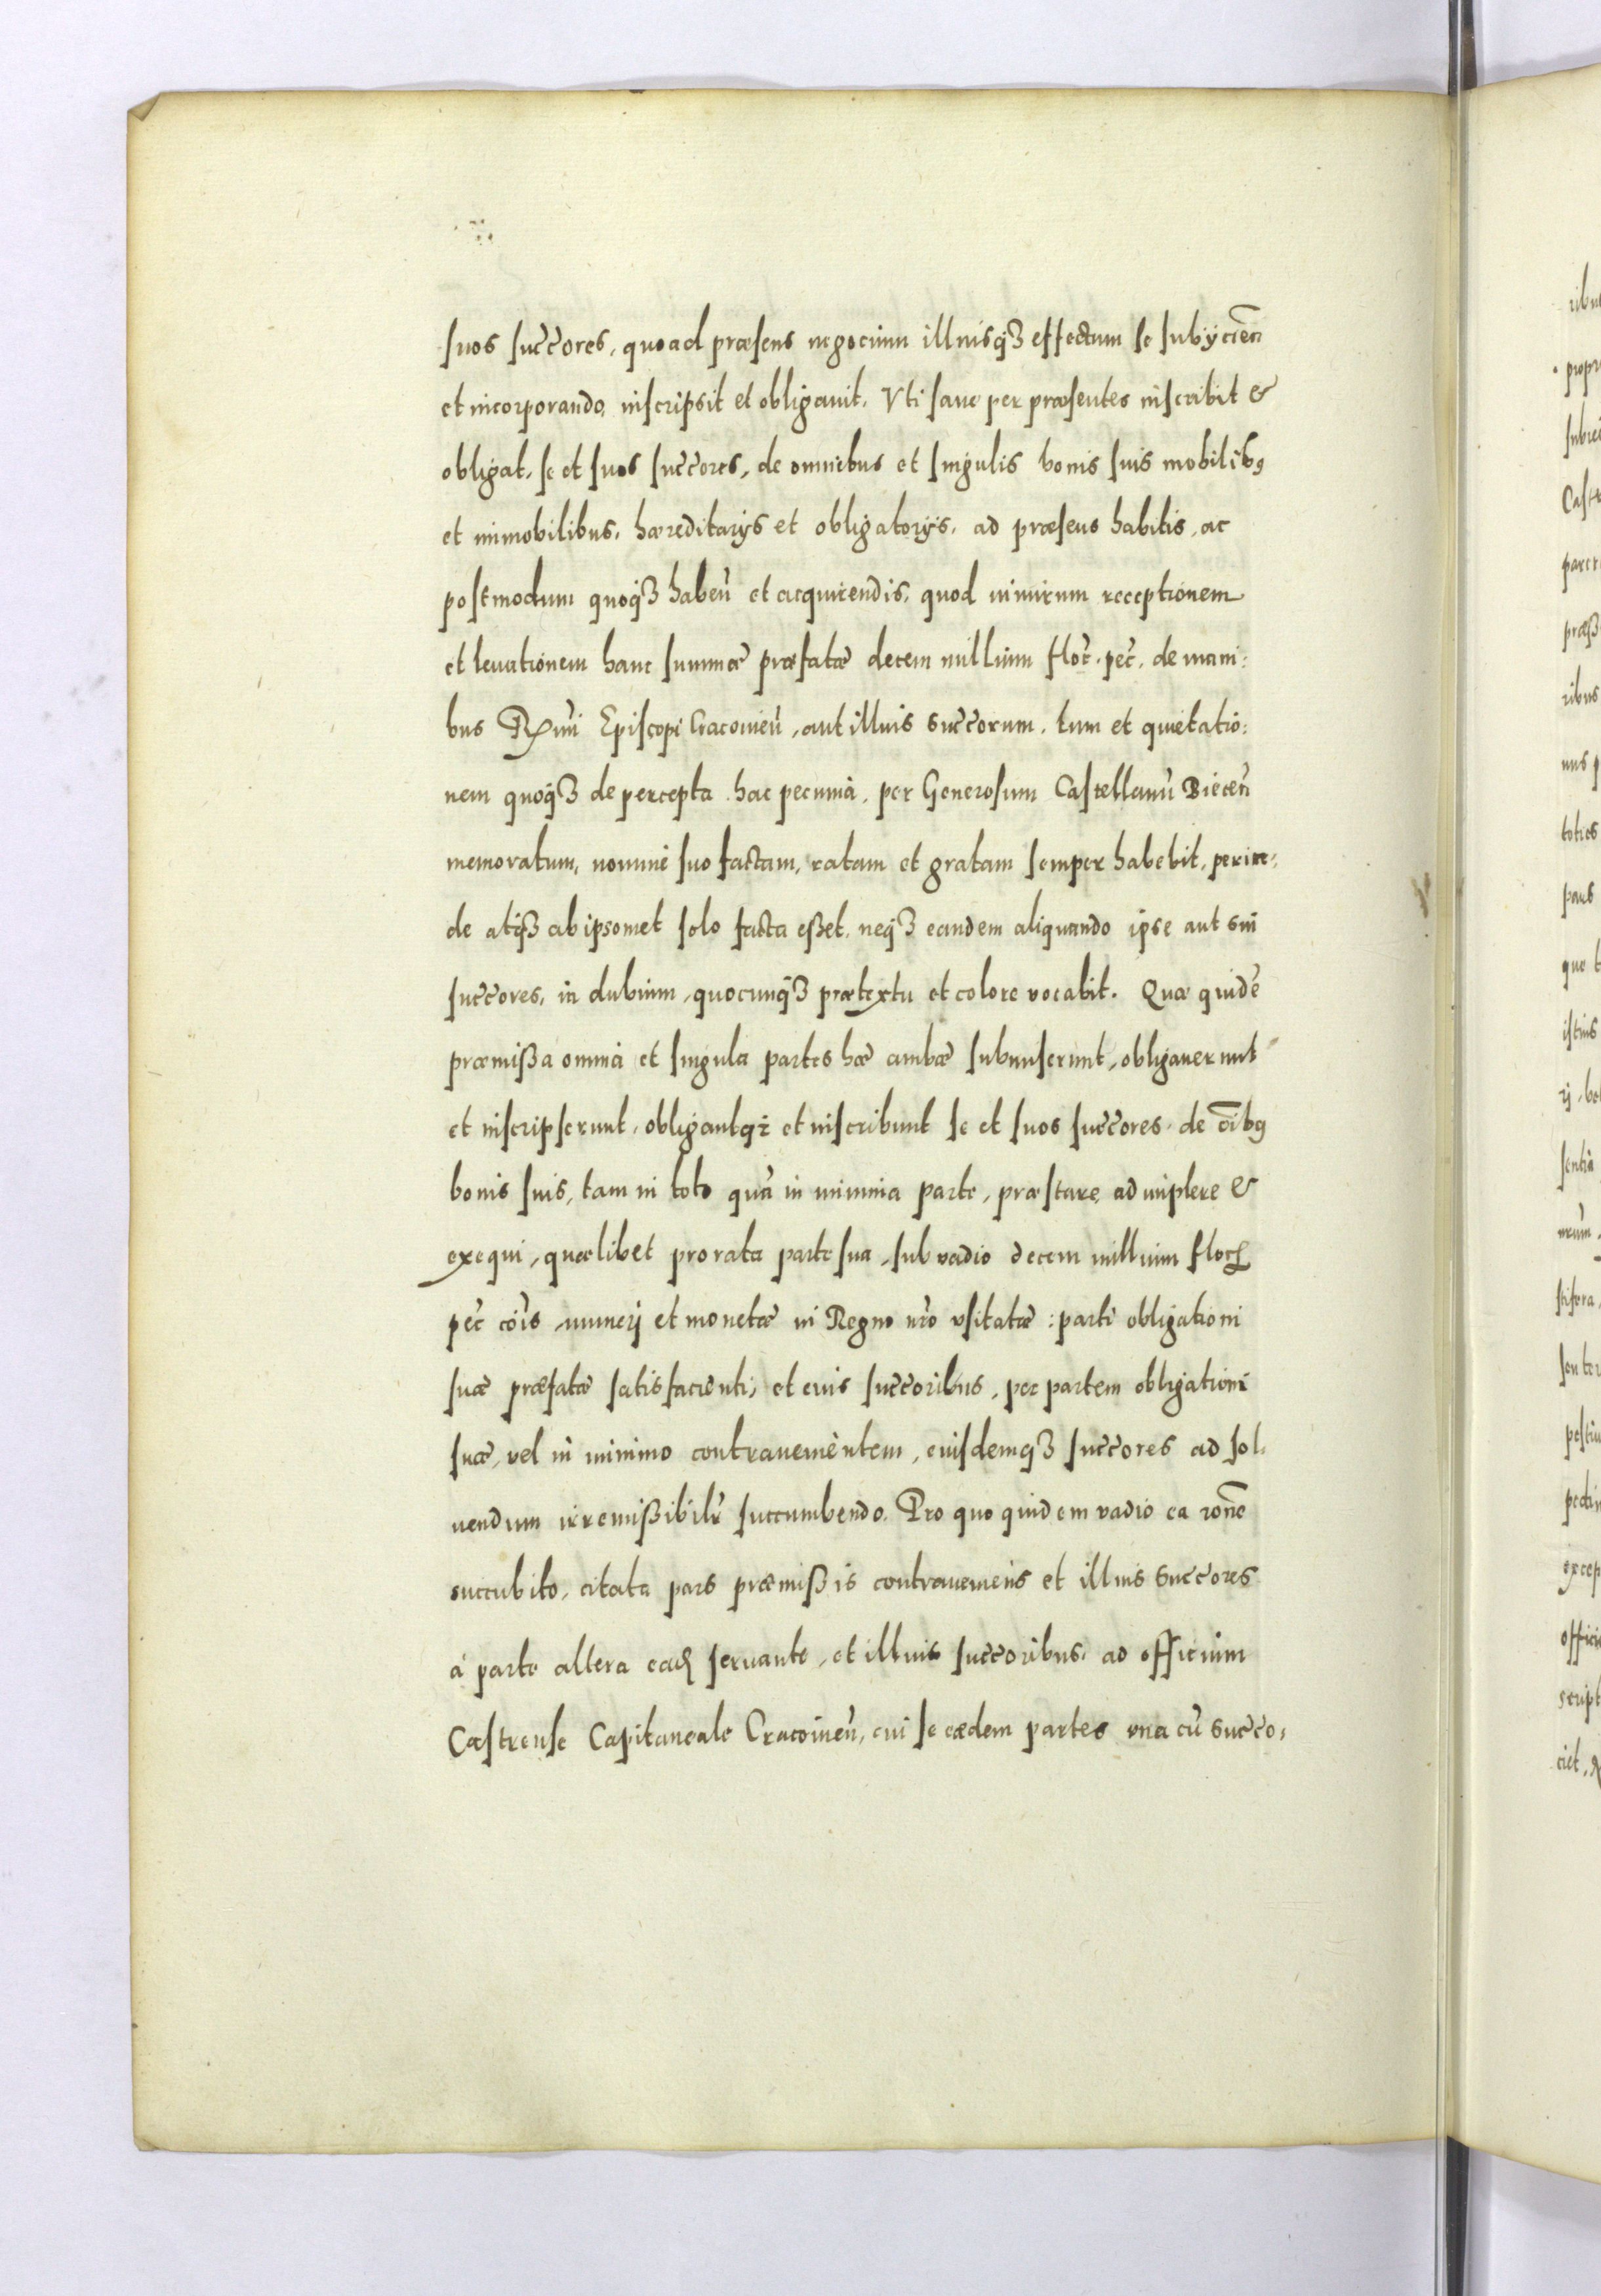 suos succores, quoad præsens negocium illiusq₃ effectum se subÿcien̄
et incorporando, inscripsit et obligauit. Vti sane per præsentes inscribit &
obligat, se et suos succores, de omnibus et singulis bonis suis mobilibꝰ
et immobilibus, hæreditarÿs et obligatorÿs, ad præsens habitis, ac
postmodum quoq₃ haben̄ et acquirendis, quod nimirum receptionem
et leuationem hanc summæ præfatæ decem millium floc̄. pec̄. de mani:
bus Rx̄mi Episcopi Cracouien̄, aut illius succorum, tum et quietatio:
nem quoq₃ de percepta hac pecunia, per Generosum Castellanū Biecen̄
memoratum, nomine suo factam, ratam et gratam semper habebit, perin:
de atq₃ ab ipsomet solo facta eßet, neq₃ eandem aliquando ipse aut sui
succores, in dubium, quocunq₃ prætextu et colore vocabit. Quæ quidē
præmißa omnia et singula partes hæ ambæ subiunxerunt, obligauerunt
et inscripserunt, obligantq₃ et inscribunt se et suos succores, de oībꝰ
bonis suis, tam in toto quā in minima parte, præstare, adimplere &
exequi, quælibet pro rata parte sua, sub vadio decem millium floc̄
pec̄ cōis, numerj et monetæ in Regno nr̄o vsitatæ: parti obligationi
suæ præfatæ satisfacienti, et eius succoribus, per partem obligationi
suæ, vel in minimo contrauenientem, eiusdemq₃ succores ad sol:
uendum irremißibilr̄ succumbendo. Pro quo quidem vadio ea rōne
succubito, citata pars præmißis contraueniens et illius succores
à parte altera eadꝫ seruante, et illius succoribus, ad officium
Castrense Capitaneale Cracouien̄, cui se eædem partes vna cū succo: